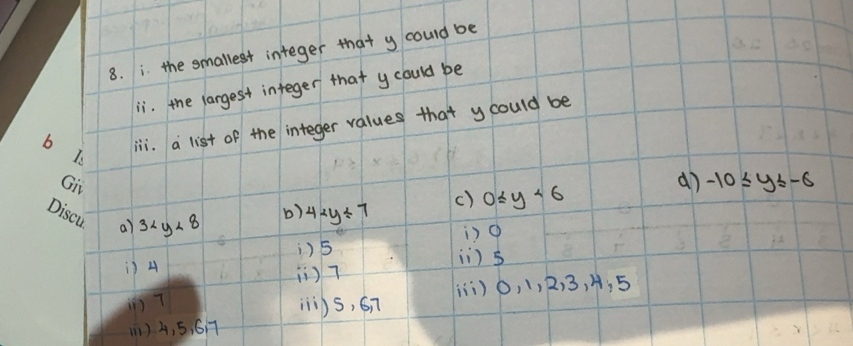 8. i. the smallest integer that y could be
ii. the largest integer that y could be
iii. a list of the integer values that y could be
b
Giv
Discu
a) 3<y<8
i) 4
ii) 7
iii) 4,5,6,7
b) 4<y≤7
i) 5
ii) 7
iii) 5,6,7
c) 0≤y<6
i) 0
ii) 5
iii) 0,1,2,3,4,5
d) -10≤y≤-6